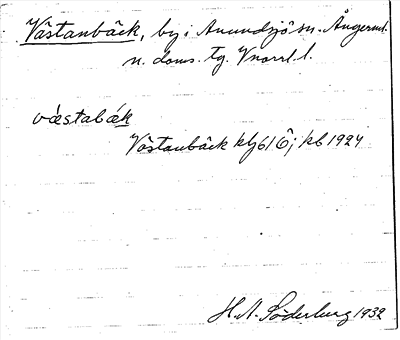 Västanbäck, by i Anundsjö sn. Ångerml.
n. doms. tg. Vnorrl. l.
västabäk
Västanbäck klj 61 Ö; kb 1924
H.N. Söderberg 1932